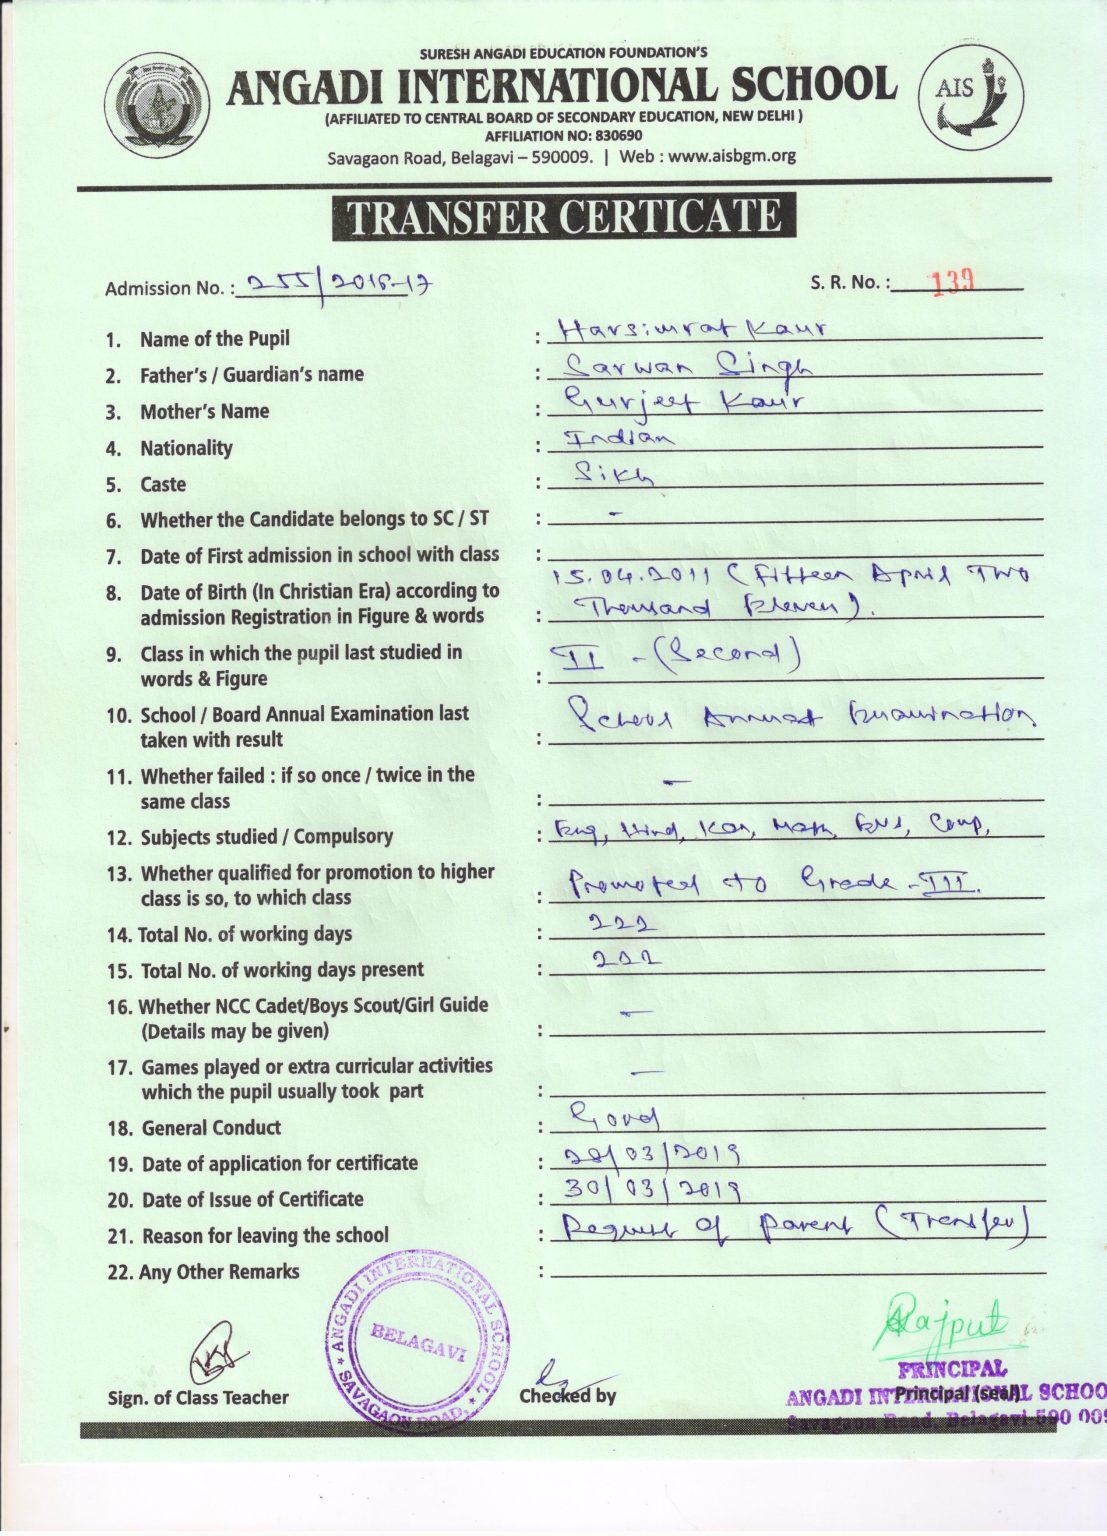 SURESH ANGADI EDUCATION FOUNDATION'S
ANGADI INTERNATIONAL SCHOOL
(AFFILIATED TO CENTRAL BOARD OF SECONDARY EDUCATION, NEW DELHI )
AFFILIATION NO: 830690
Savagaon Road, Belagavi – 590009. | Web : www.aisbgm.org
AIS
TRANSFER CERTICATE
Admission No. : 255/2016-17 S. R. No. : 139
1. Name of the Pupil : Harsimrat Kaur
2. Father's / Guardian's name : Sarwan Singh
3. Mother's Name : Gurjeet Kaur
4. Nationality : Indian
5. Caste : Sikh
6. Whether the Candidate belongs to SC / ST : -
7. Date of First admission in school with class :
8. Date of Birth (In Christian Era) according to 15.04.2011 (Fifteen April Two
admission Registration in Figure & words : Thousand Eleven).
9. Class in which the pupil last studied in II - (Second)
words & Figure :
10. School / Board Annual Examination last School Annual Examination
taken with result :
11. Whether failed : if so once / twice in the -
same class :
12. Subjects studied / Compulsory : Eng, Hind, Kan, Math, EVS, Comp,
13. Whether qualified for promotion to higher
class is so, to which class : Promoted to Grade - III.
14. Total No. of working days : 222
15. Total No. of working days present : 222
16. Whether NCC Cadet/Boys Scout/Girl Guide -
(Details may be given) :
17. Games played or extra curricular activities -
which the pupil usually took part :
18. General Conduct : Good
19. Date of application for certificate : 28/03/2019
20. Date of Issue of Certificate : 30/03/2019
21. Reason for leaving the school : Request of Parent (Transfer)
22. Any Other Remarks :
ANGADI INTERNATIONAL SCHOOL
BELAGAVI
SAVAGAON ROAD,
Rajput
PRINCIPAL
Sign. of Class Teacher Checked by Principal (seal)
ANGADI INTERNATIONAL SCHOO
Savagaon Road, Belagavi-590 009